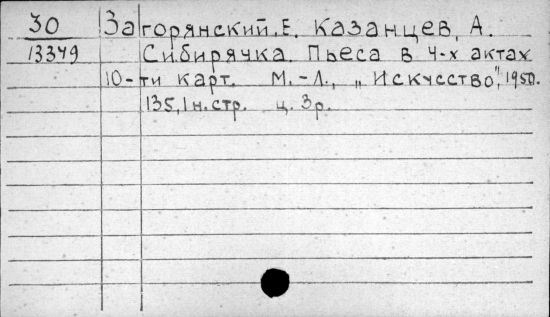 30 Загорянский, Е. Казанцев, А.
13349 Сибирячка. Пьеса в 4-х актах
10-ти карт. М.-Л., „Искусство", 1950.
135, 1 н. стр. ц. 3 р.